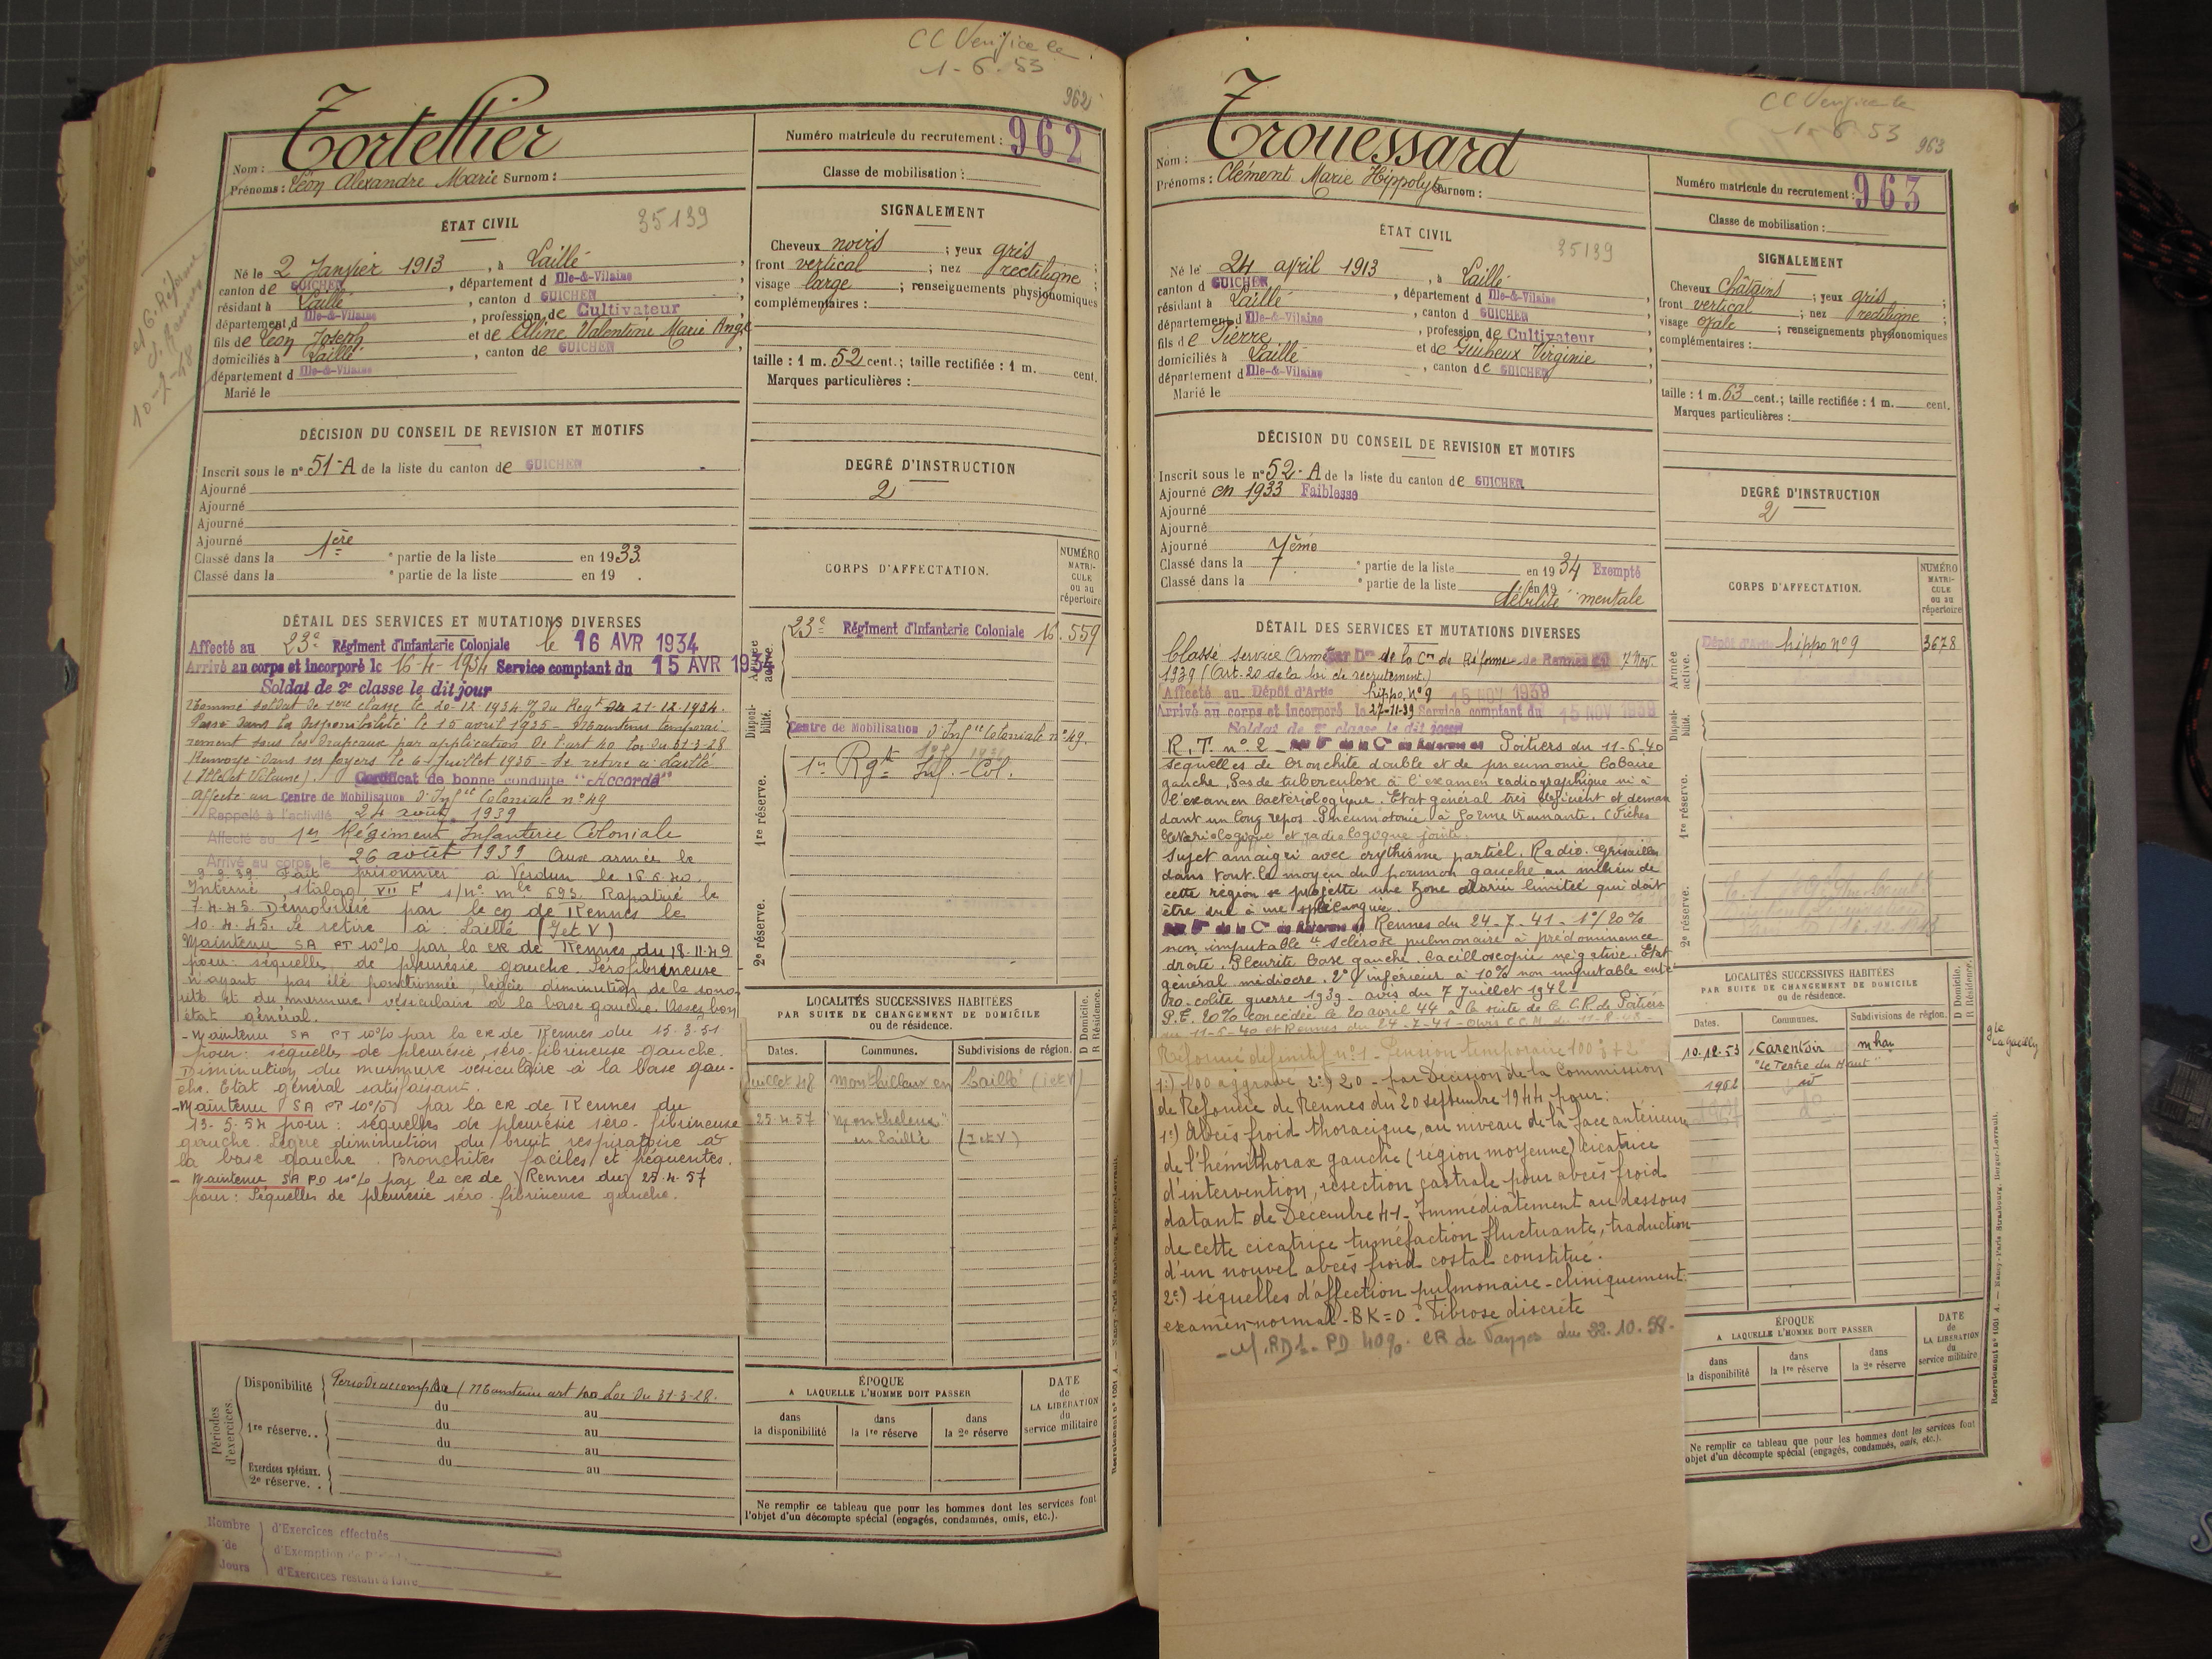 CC Verifice le
1-6-53
962
Tortellier
Nom :
Prénoms : Léon Alexandre Marie Surnom :
Numéro matricule du recrutement : 962
Classe de mobilisation :
ÉTAT CIVIL
35139
Né le 2 Janvier 1913, à Laillé
canton de GUICHEN, département d Ille-&-Vilaine
résidant à Laillé, canton d GUICHEN
département d Ille-&-Vilaine, profession de Cultivateur
fils de Léon Joseph et de Olline Valentine Marie Ange
domiciliés à Laillé, canton de GUICHEN
département d Ille-&-Vilaine
Marié le
10-2-48
SIGNALEMENT
Cheveux noirs ; yeux gris ;
front vertical ; nez rectiligne ;
visage large ; renseignements physionomiques
complémentaires :
taille : 1 m. 52 cent.; taille rectifiée : 1 m. cent.
Marques particulières :
DÉCISION DU CONSEIL DE REVISION ET MOTIFS
Inscrit sous le n° 51-A de la liste du canton de GUICHEN
Ajourné
Ajourné
Ajourné
Ajourné
Classé dans la 1ère e partie de la liste en 1933.
Classé dans la e partie de la liste en 19 .
DEGRÉ D'INSTRUCTION
2
DÉTAIL DES SERVICES ET MUTATIONS DIVERSES
Affecté au 23e Régiment d'Infanterie Coloniale le 16 AVR 1934
Arrivé au corps et incorporé le 16-4-1934 Service comptant du 15 AVR 1934
Soldat de 2e classe le dit jour
Nommé soldat de 1ere classe le 20-12-1934. O/ du Regt du 21-12-1934.
Passé dans la disponibilité le 15 avril 1935 - Maintenu temporai-
rement sous les drapeaux par application de l'art 40 loi du 31-3-28
Renvoyé dans ses foyers le 6 juillet 1935 - Se retire à Laillé
(Ille et Vilaine). Certificat de bonne conduite "Accordé"
Affecté au Centre de Mobilisation d'Infie Coloniale n° 49
Rappelé à l'activité 24 août 1939
Affecté au 1er Régiment Infanterie Coloniale
Arrivé au corps le 26 août 1939 Aux armées le
9.9.39 Fait prisonnier à Verdun le 16.6.40.
Interné stalag VII F s/n° mle 693. Rapatrié le
7.4.45. Démobilisé par le CD de Rennes le
10.4.45. Se retire à Laillé (I et V)
Maintenu SA PT 10% par la CR de Rennes du 18.11.49
pour: séquelles de pleurésie gauche. Sérofibrineuse
n'ayant pas été ponctionnée, légère diminution de la sono-
rité et du murmure vésiculaire à la base gauche. Assez bon
état général.
- Maintenu SA PT 10% par la CR de Rennes du 15.3.51
pour: séquelles de pleurésie séro-fibrineuse gauche.
Diminution du murmure vésiculaire à la base gau-
che. Etat général satisfaisant.
- Maintenu SA PT 10% par la CR de Rennes du
13-5.54 pour : séquelles de pleurésie séro-fibrineuse
gauche. Légère diminution du bruit respiratoire à
la base gauche. Bronchites faciles et fréquentes.
- Maintenu SA PD 10% par la CR de Rennes du 25.4.57
pour: Séquelles de pleurésie séro-fibrineuse gauche.
CORPS D'AFFECTATION.
NUMÉRO
MATRI-
CULE
ou au
répertoire
Armée active.
23e Régiment d'Infanterie Coloniale 16.559
Disponi-
bilité.
Centre de Mobilisation d'Infie Coloniale n° 49.
1re réserve.
1er Rgt Inf.-Col.
2e réserve.
LOCALITÉS SUCCESSIVES HABITÉES
PAR SUITE DE CHANGEMENT DE DOMICILE
ou de résidence.
D Domicile.
R Résidence.
Dates.
Communes.
Subdivisions de région.
Juillet 48 Monthilleux en Laillé (I et V)
25.4.57 "Montheleux" en Laillé (I et V)
Périodes d'exercices.
Disponibilité Période accomplie (Maintenu art 40 Loi du 31-3-28.
du au
1re réserve. .
du au
du au
Exercices spéciaux.
2e réserve. .
du au
ÉPOQUE
A LAQUELLE L'HOMME DOIT PASSER
dans la disponibilité
dans la 1re réserve
dans la 2e réserve
DATE
de
LA LIBÉRATION
du
service militaire
Ne remplir ce tableau que pour les hommes dont les services font
l'objet d'un décompte spécial (engagés, condamnés, omis, etc.).
Nombre de Jours
d'Exercices effectués
d'Exemption de
d'Exercices restant à faire
CC Verifice le
1-6-53
963
Trouessard
Nom :
Prénoms : Clément Marie Hippolyte Surnom :
Numéro matricule du recrutement : 963
Classe de mobilisation :
ÉTAT CIVIL
35139
Né le 24 avril 1913, à Laillé
canton d GUICHEN, département d Ille-&-Vilaine
résidant à Laillé, canton d GUICHEN
département d Ille-&-Vilaine, profession de Cultivateur
fils de Pierre et de Guiheux Virginie
domiciliés à Laillé, canton de GUICHEN
département d Ille-&-Vilaine
Marié le
SIGNALEMENT
Cheveux châtains ; yeux gris ;
front vertical ; nez rectiligne ;
visage ovale ; renseignements physionomiques
complémentaires :
taille : 1 m. 63 cent.; taille rectifiée : 1 m. cent.
Marques particulières :
DÉCISION DU CONSEIL DE REVISION ET MOTIFS
Inscrit sous le n° 52-A de la liste du canton de GUICHEN
Ajourné en 1933 Faiblesse
Ajourné
Ajourné
Ajourné
Classé dans la 7ème e partie de la liste en 1934 Exempté
Classé dans la e partie de la liste en 19
débilité mentale
DEGRÉ D'INSTRUCTION
2
DÉTAIL DES SERVICES ET MUTATIONS DIVERSES
Classé service Armé par Don de la Con de Réforme de Rennes du 7 Nov.
1939 (Art. 20 de la loi de recrutement.)
Affecté au Dépôt d'Artie hippo. n° 9 15 NOV 1939
Arrivé au corps et incorporé le 27-11-39 Service comptant du 15 NOV 1939
Soldat de 2e classe le dit jour
R.T. n° 2 Poitiers du 11-6-40
séquelles de bronchite double et de pneumonie lobaire
gauche. Pas de tuberculose à l'examen radiographique ni à
l'examen bactériologique. Etat général très déficient et deman
dant un long repos. Pneumotonie à forme trainante. (Fiches
bactériologique et radiologique jointe.
Sujet amaigri avec erythisme partiel. Radio. Grisailles
dans tout le moyen du poumon gauche au milieu de
cette région se projette une zone limitée qui doit
être due à une
Rennes du 24-7-41 - 1°/ 20%
non imputable sclérose pulmonaire à prédominance
droite. Pleurite base gauche. Bacilloscopie négative. Etat
général médiocre. 2°/ inférieur à 10% non imputable enté-
ro-colite guerre 1939 - avis du 7 Juillet 1942 -
P.T. 20% concédée le 20 avril 44 à la suite de la C.R. de Poitiers
du 11-6-40 et Rennes du 24-7-41 - avis C.C.M. du 11-8-48 -
Réformé définitif n°1 - Pension temporaire 100% + 2
1°) 100 aggravé 2°) 20 - par Décision de la Commission
de Réforme de Rennes du 20 septembre 1944 pour:
1°) Abcès froid thoracique, au niveau de la face antérieure
de l'hémithorax gauche (région moyenne) cicatrice
d'intervention, résection castrale pour abcès froid
datant de Décembre 41 - Immédiatement au dessous
de cette cicatrice tuméfaction fluctuante, traduction
d'un nouvel abcès froid costal constitué.
2°) séquelles d'affection pulmonaire - cliniquement
examen normal - BK = 0 - Fibrose discrète
- M. RD1 - PD 40% - CR de Vannes du 22.10.58 -
CORPS D'AFFECTATION.
NUMÉRO
MATRI-
CULE
ou au
répertoire
Armée active.
Dépôt d'Artie hippo n° 9 3678
Disponi-
bilité.
1re réserve.
2e réserve.
LOCALITÉS SUCCESSIVES HABITÉES
PAR SUITE DE CHANGEMENT DE DOMICILE
ou de résidence.
D Domicile.
R Résidence.
Dates.
Communes.
Subdivisions de région.
10.12.53 Carentoir mhan
"Le Tertre du Haut"
gle La Gacilly
1962
ÉPOQUE
A LAQUELLE L'HOMME DOIT PASSER
dans la disponibilité
dans la 1re réserve
dans la 2e réserve
DATE
de
LA LIBÉRATION
du
service militaire
Ne remplir ce tableau que pour les hommes dont les services font
objet d'un décompte spécial (engagés, condamnés, omis, etc.).
Recrutement n° 1001 A. — Nancy-Paris Strasbourg, Berger-Levrault.